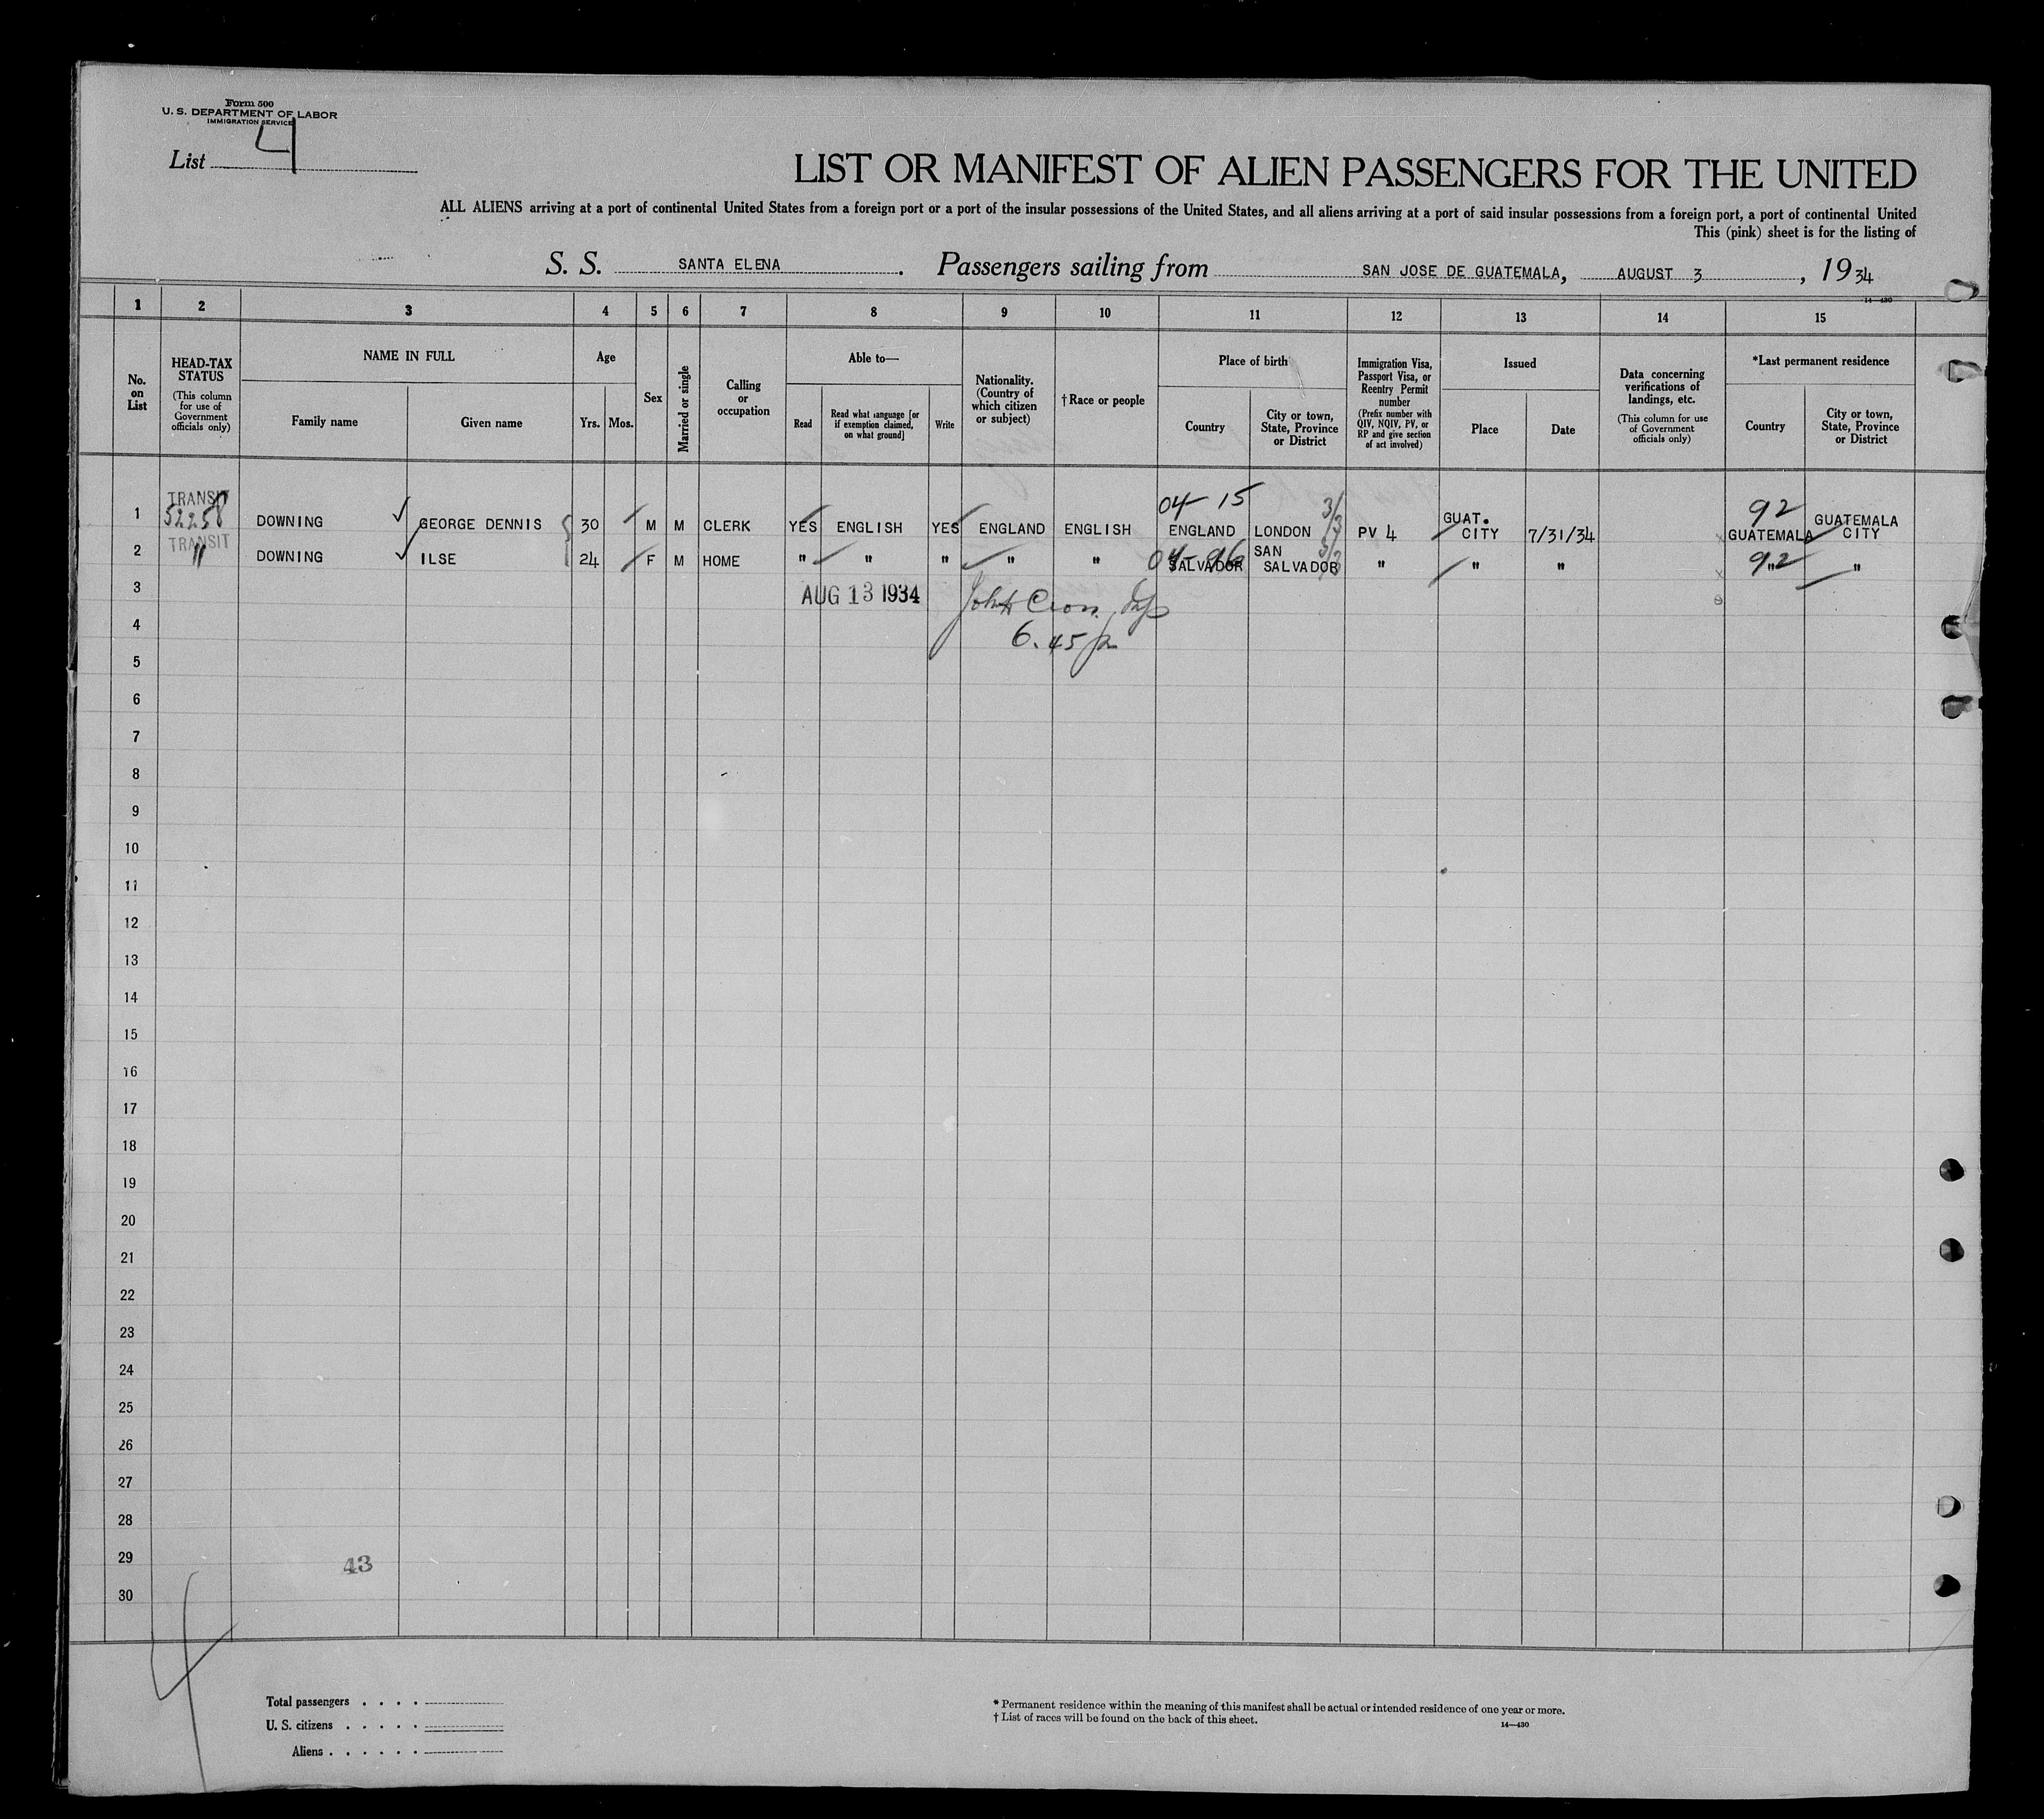 Form 500
U. S. DEPARTMENT OF LABOR
IMMIGRATION SERVICE
List 4
LIST OR MANIFEST OF ALIEN PASSENGERS FOR THE UNITED
ALL ALIENS arriving at a port of continental United States from a foreign port or a port of the insular possessions of the United States, and all aliens arriving at a port of said insular possessions from a foreign port, a port of continental United
This (pink) sheet is for the listing of
S. S. SANTA ELENA. Passengers sailing from SAN JOSE DE GUATEMALA, AUGUST 3, 1934
14—430
1 2 3 4 5 6 7 8 9 10 11 12 13 14 15
No. on List
HEAD-TAX STATUS
(This column for use of Government officials only)
NAME IN FULL
Family name
Given name
Age
Yrs. Mos.
Sex
Married or single
Calling or occupation
Able to—
Read
Read what language [or if exemption claimed, on what ground]
Write
Nationality. (Country of which citizen or subject)
†Race or people
Place of birth
Country
City or town, State, Province or District
Immigration Visa, Passport Visa, or Reentry Permit number
(Prefix number with QIV, NQIV, PV, or RP and give section of act involved)
Issued
Place
Date
Data concerning verifications of landings, etc.
(This column for use of Government officials only)
*Last permanent residence
Country
City or town, State, Province or District
TRANSIT 04-15 3/3 92
1 52258 DOWNING GEORGE DENNIS 30 M M CLERK YES ENGLISH YES ENGLAND ENGLISH ENGLAND LONDON PV 4 GUAT. CITY 7/31/34 GUATEMALA GUATEMALA CITY
TRANSIT
2 " DOWNING ILSE 24 F M HOME " " " " " SALVADOR SAN SALVADOR " " " 92 " "
3 AUG 13 1934 John
4 6.45 p
5
6
7
8
9
10
11
12
13
14
15
16
17
18
19
20
21
22
23
24
25
26
27
28
29 43
30
4
Total passengers . . . .
U. S. citizens . . . . .
Aliens . . . . . .
* Permanent residence within the meaning of this manifest shall be actual or intended residence of one year or more.
† List of races will be found on the back of this sheet.
14—430